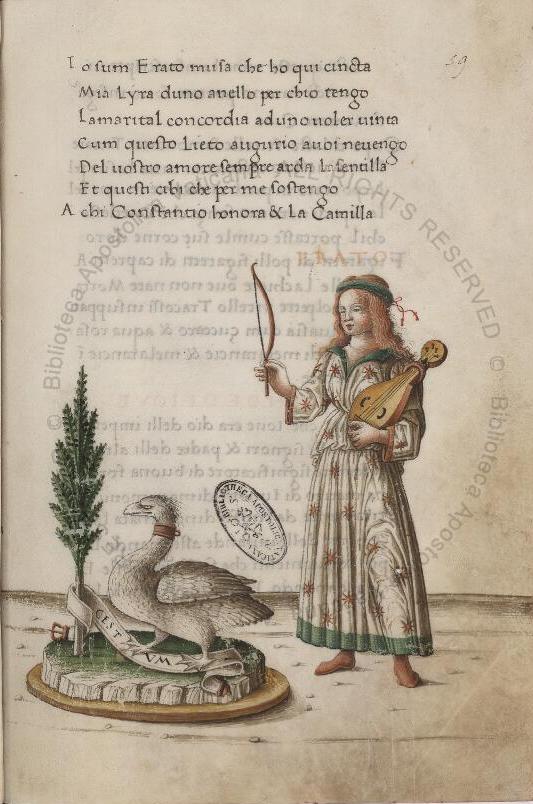 59
Io sum Erato musa che ho qui cincta
Mia Lyra duno anello per chio tengo
Lamarital concordia ad uno uoler uinta
Cum questo Lieto augurio auoi neuengo
Del uostro amore sempre arda la sentilla
Et questi cibi che per me sostengo
A chi Constantio honora & La Camilla
CEST
VM
BIBLIOTHECA APOSTOLICA VATICANA
© Biblioteca Apostolica Vaticana ALL RIGHTS RESERVED © Biblioteca Apostolica